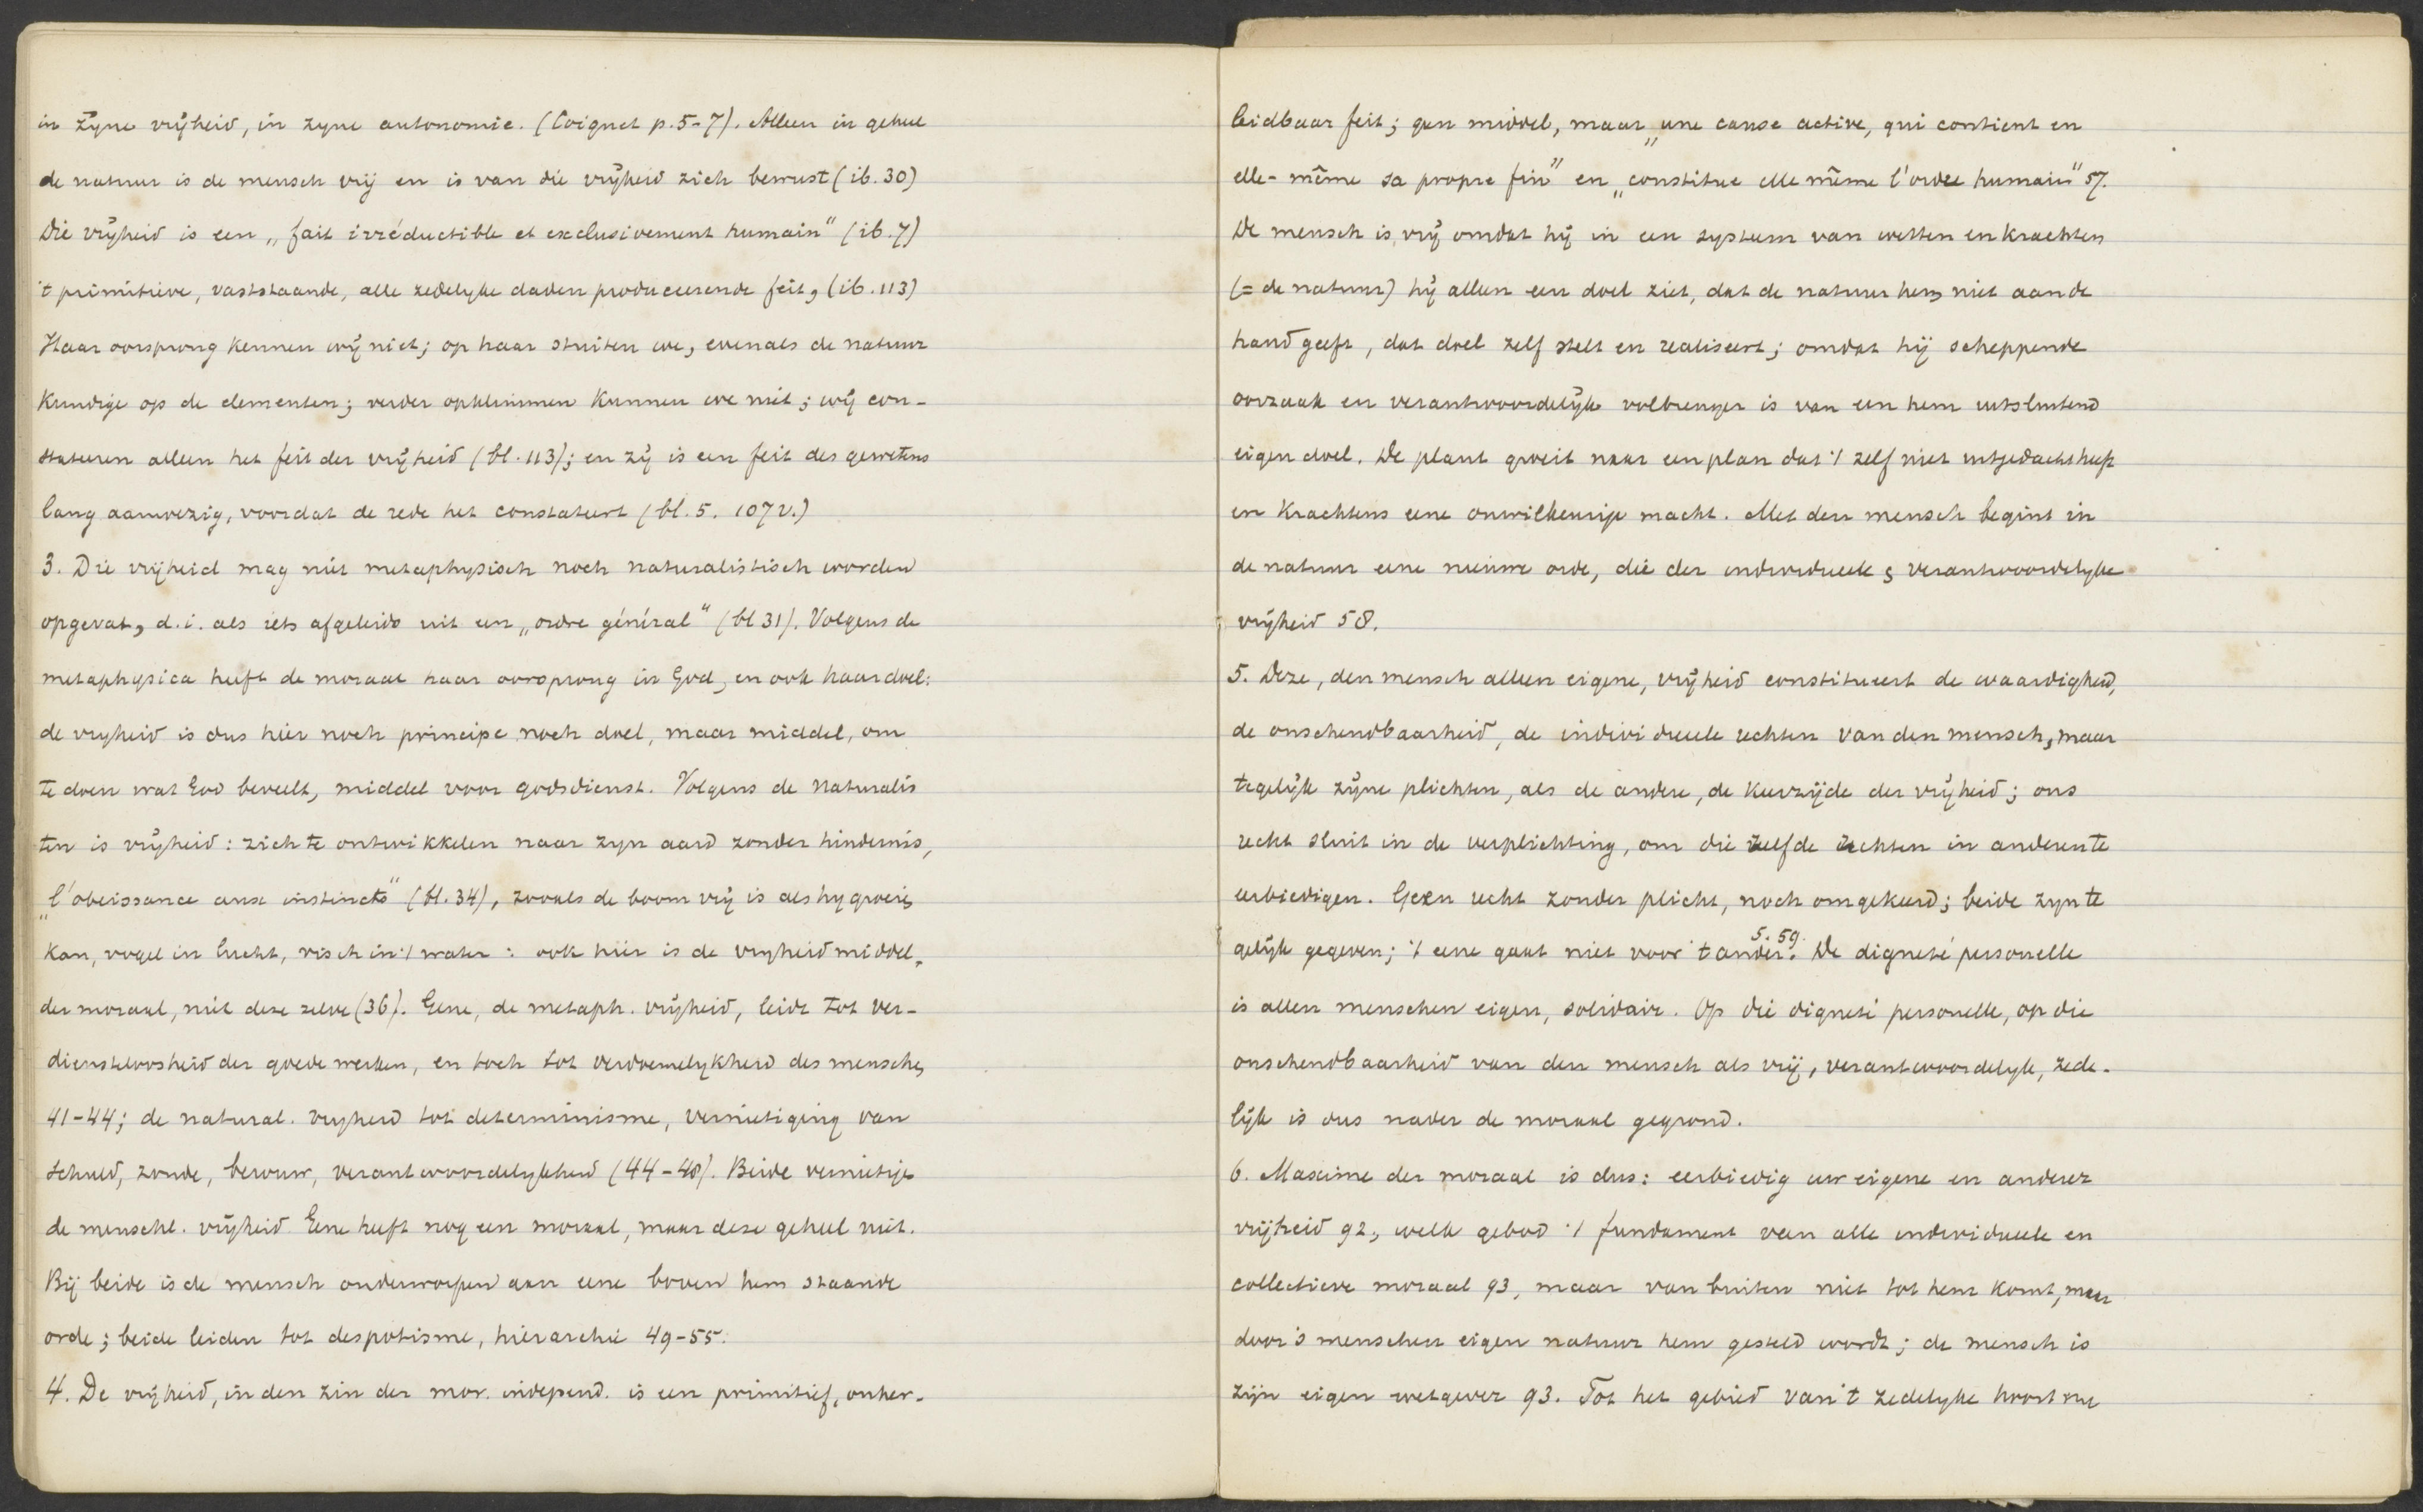 in zijne vrijheid, in zijne autonomie. (Coignet p. 5-7). Alleen in geheel
de natuur is de mensch vrij en is van die vrijheid zich bewust (ib. 30)
Die vrijheid is een „fait irréductible et exclusivement humain" (ib. 7)
't primitieve, vaststaande, alle zedelyke daden produceerende feit, (ib. 113)
Haar oorsprong kennen wij niet; op haar stuiten we, evenals de natuur
kundige op de elementen; verder opklimmen kunnen we niet; wij con-
stateeren alleen het feit der vrijheid (bl. 113); en zij is een feit des gewetens
lang aanwezig, voordat de rede het constateert (bl. 5. 107 v.)
3. Die vrijheid mag niet metaphysisch noch naturalistisch worden
opgevat, d. i. als iets afgeleids uit een „ordre général" (bl 31). Volgens de
metaphysica heeft de moraal haar oorsprong in God, en ook haar doel:
de vryheid is dus hier noch principe noch doel, maar middel, om
te doen wat God beveelt, middel voor godsdienst. Volgens de Naturalis
ten is vrijheid: zich te ontwikkelen naar zyn aard zonder hindernis,
„l'obeissance aux instincts" (bl. 34), zooals de boom vrij is als hy groeien
kan, vogel in lucht, visch in 't water: ook hier is de vryheid middel,
der moraal, niet deze zelve (36). Gene, de metaph. vrijheid, leidt tot ver-
diensteloosheid der goede werken, en toch tot verdoemelykheid des menschen
41-44; de natural. vryheid tot determinisme, vernietiging van
schuld, zonde, berouw, verantwoordelykheid (44-48). Beide vernietigen
de menschl. vrijheid. Gene heeft nog een moraal, maar deze geheel niet.
Bij beide is de mensch onderworpen aan eene boven hem staande
orde; beide leiden tot despotisme, hiërarchie 49-55.
4. De vrijheid, in den zin der mor. independ. is een primitief, onher-
leidbaar feit; geen middel, maar „une cause active, qui contient en
elle-même sa propre fin" en „constitue elle même l'ordre humain" 57.
De mensch is vrij omdat hij in een systeem van wetten en krachten
(= de natuur) hij alleen een doel ziet, dat de natuur hem niet aan de
hand geeft, dat doel zelf stelt en realiseert; omdat hij scheppende
oorzaak en verantwoordelijk volbrenger is van een hem uitsluitend
eigen doel. De plant groeit naar een plan dat 't zelf niet uitgedacht heeft
en krachtens eene onwillekeurige macht. Met den mensch begint in
de natuur eene nieuwe orde, die der individueele & verantwoordelyke
vrijheid 58.
5. Deze, den mensch alleen eigene, vrijheid constitueert de waardigheid,
de onschendbaarheid, de individueele rechten van den mensch, maar
tegelijk zijne plichten, als de andere, de keerzijde der vrijheid; ons
recht sluit in de verplichting, om die zelfde rechten in anderen te
eerbiedigen. Geen recht zonder plicht, noch omgekeerd; beide zyn te
gelijk gegeven; 't eene gaat niet voor 't ander. 5. 59. De dignité personelle
is allen menschen eigen, solidair. Op die dignité personelle, op die
onschendbaarheid van den mensch als vrij, verantwoordelyk, zede-
lijk is dus nader de moraal gegrond.
6. Maxime der moraal is dus: eerbiedig uw eigene en anderer
vrijheid 92, welk gebod 't fundament van alle individueele en
collectieve moraal 93, maar van buiten niet tot hem komt, maar
door 's menschen eigen natuur hem gesteld wordt; de mensch is
zijn eigen wetgever 93. Tot het gebied van 't zedelyke hoort nu